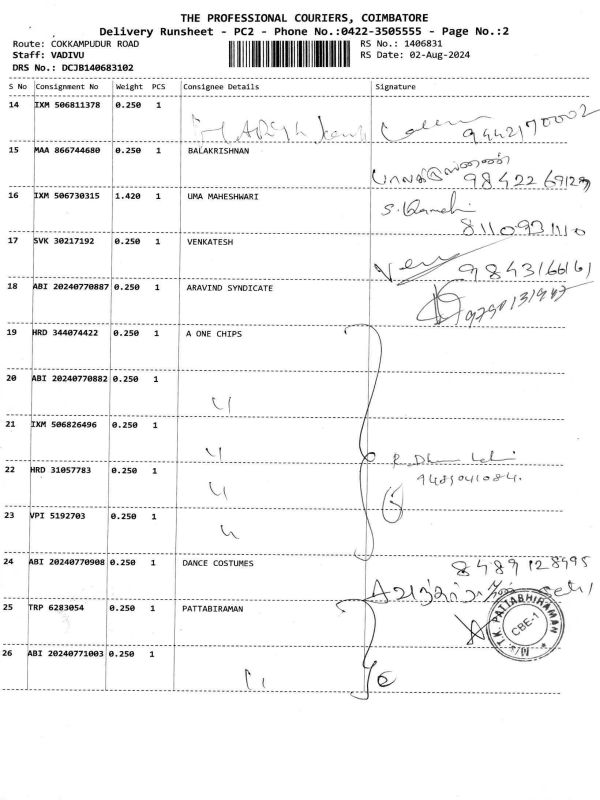 THE PROFESSIONAL COURIERS, COIMBATORE
Delivery Runsheet - PC2 - Phone No.:0422-3505555 - Page No.:2
Route: COKKAMPUDUR ROAD RS No.: 1406831
Staff: VADIVU RS Date: 02-Aug-2024
DRS No.: DCJB140683102
S No Consignment No Weight PCS Consignee Details Signature
14 IXM 506811378 0.250 1
9442170002
15 MAA 866744680 0.250 1 BALAKRISHNAN
பாலகிருஷ்ணன்
16 IXM 506730315 1.420 1 UMA MAHESHWARI
8110931110
17 SVK 30217192 0.250 1 VENKATESH
9843166161
18 ABI 20240770887 0.250 1 ARAVIND SYNDICATE
19 HRD 344074422 0.250 1 A ONE CHIPS
20 ABI 20240770882 0.250 1
21 IXM 506826496 0.250 1
22 HRD 31057783 0.250 1
23 VPI 5192703 0.250 1
24 ABI 20240770908 0.250 1 DANCE COSTUMES
8489128495
25 TRP 6283054 0.250 1 PATTABIRAMAN
M/s. T.K. PATTABHIRAMAN
CBE-1
26 ABI 20240771003 0.250 1